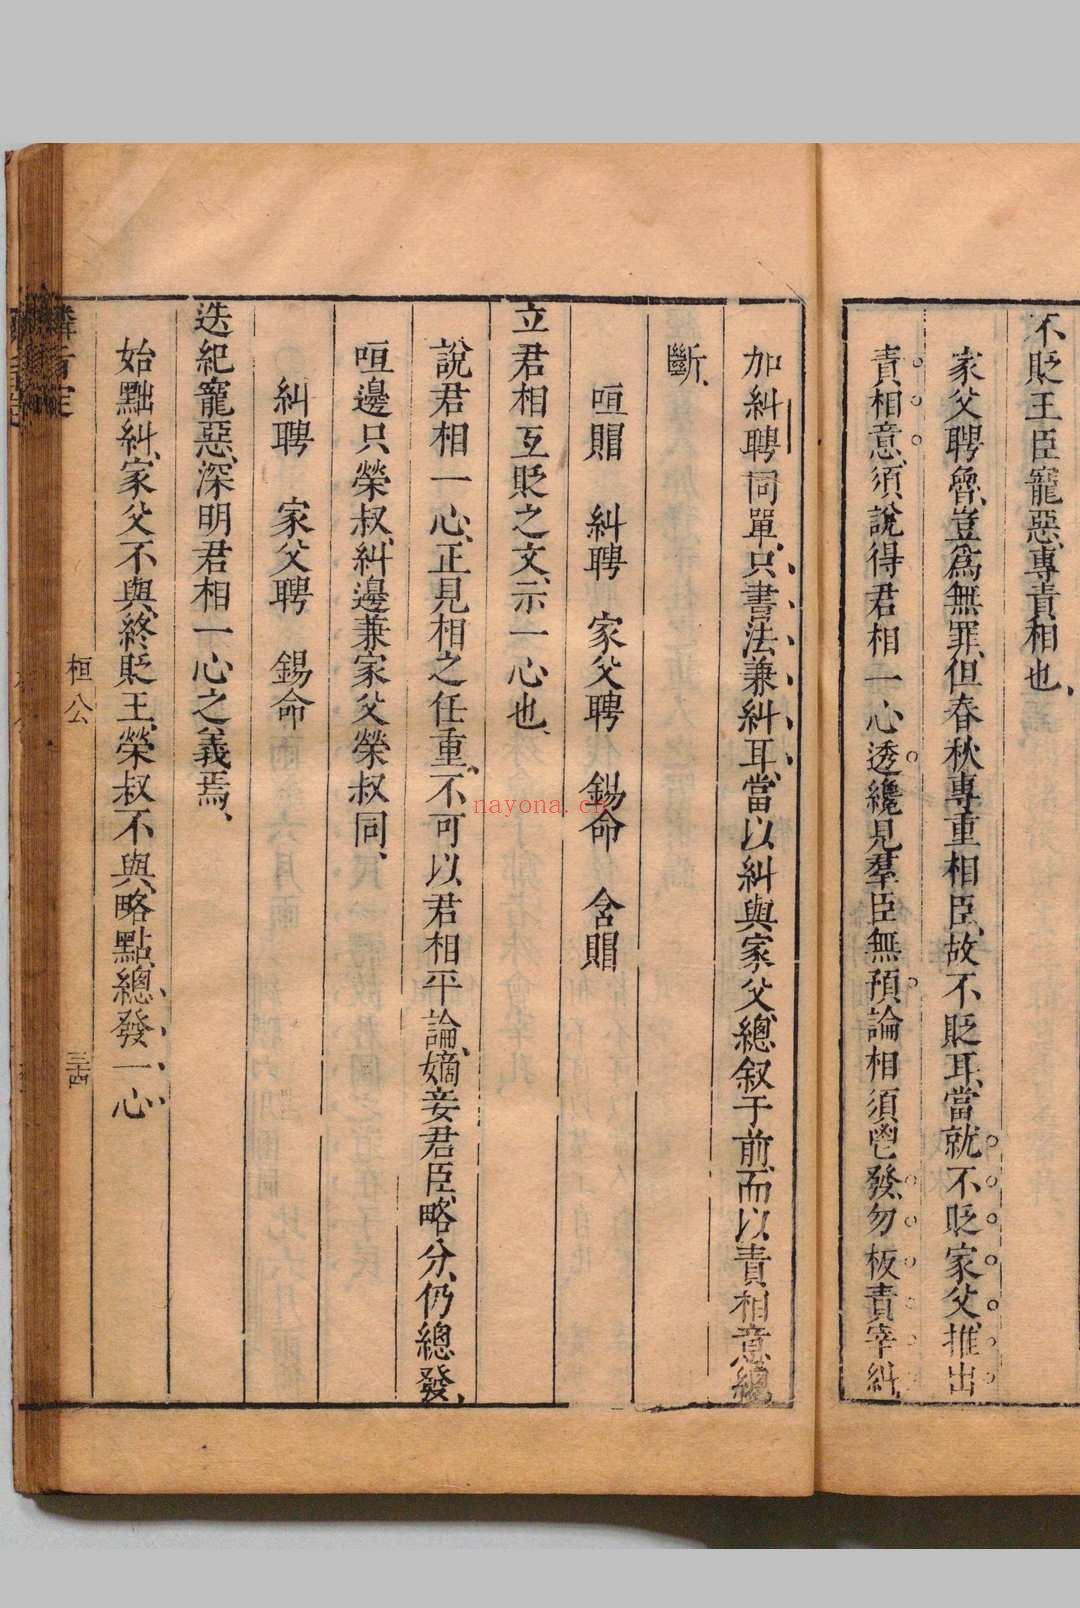 不貶王臣寵惡、專責相也、
家父聘魯、豈為無罪、但春秋專重相臣、故不貶耳、當就不貶家父、推出
責相意、須說得君相一心透、纔見羣臣無預、論相須鬯發、勿板責宰糾、
加糾聘同單、只書法兼糾耳、當以糾與家父、總叙于前、而以責相意總
斷、
咺賵　糾聘　家父聘　錫命　含賵
立君相互貶之文、示一心也、
說君相一心、正見相之任重、不可以君相平論、嫡妾君臣、略分、仍總發、
咺邊只榮叔、糾邊兼家父榮叔同、
糾聘　家父聘　錫命
迭紀寵惡、深明君相一心之義焉、
始黜糾、家父不與、終貶王、榮叔不與、略點、總發一心
桓公
三十四
nayona.cn